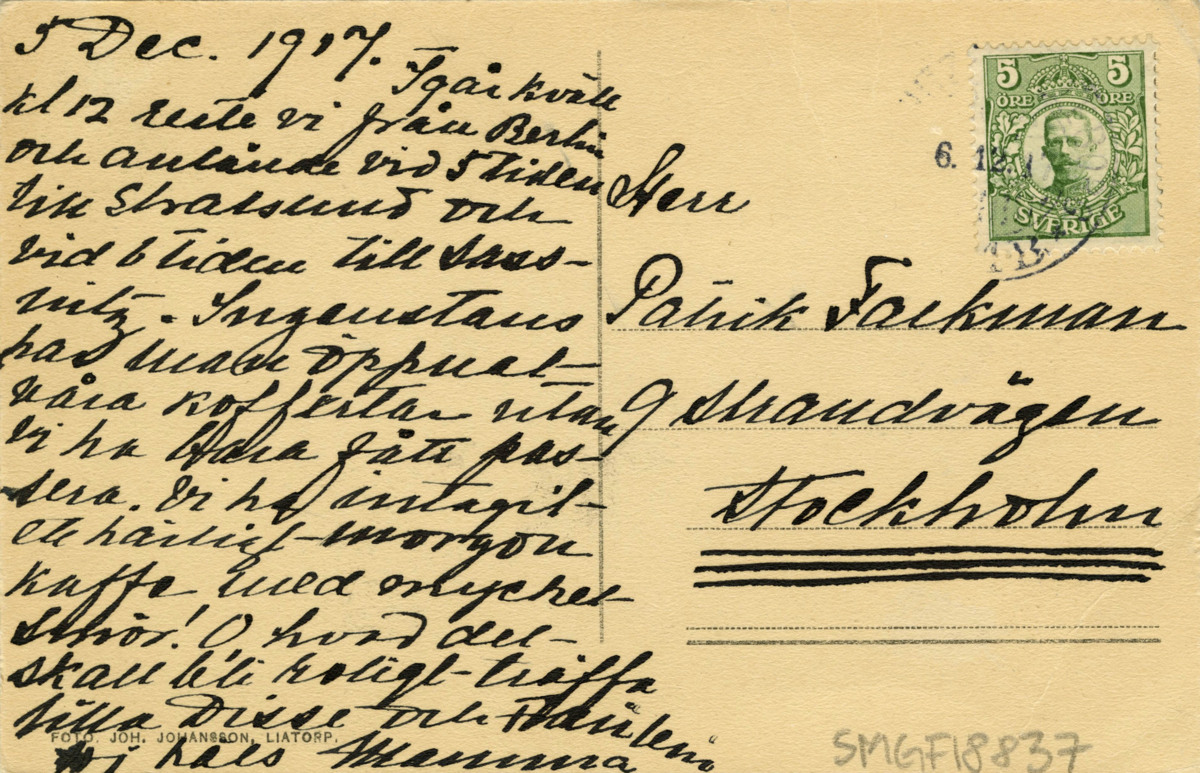 5 Dec. 1917.
Igår kväll
kl 12 reste vi från Berlin
och anlände vid 5 tiden
till Stralsund och
vid 6 tiden till Sass-
nitz. Ingenstans
har man öppnat
våra koffertar utan
vi ha bara fått pas-
sera. Vi ha intagit
ett härligt morgon
kaffe med mycket
smör! O hvad det
skall bli roligt träffa
lilla Disse och Fräulein
häls Mamma
FOTO. JOH. JOHANSSON, LIATORP.
5 5
ÖRE ÖRE
SVERIGE
6. 12. 17
Herr
Patrik Falkman
9 Strandvägen
Stockholm
SMGF18837